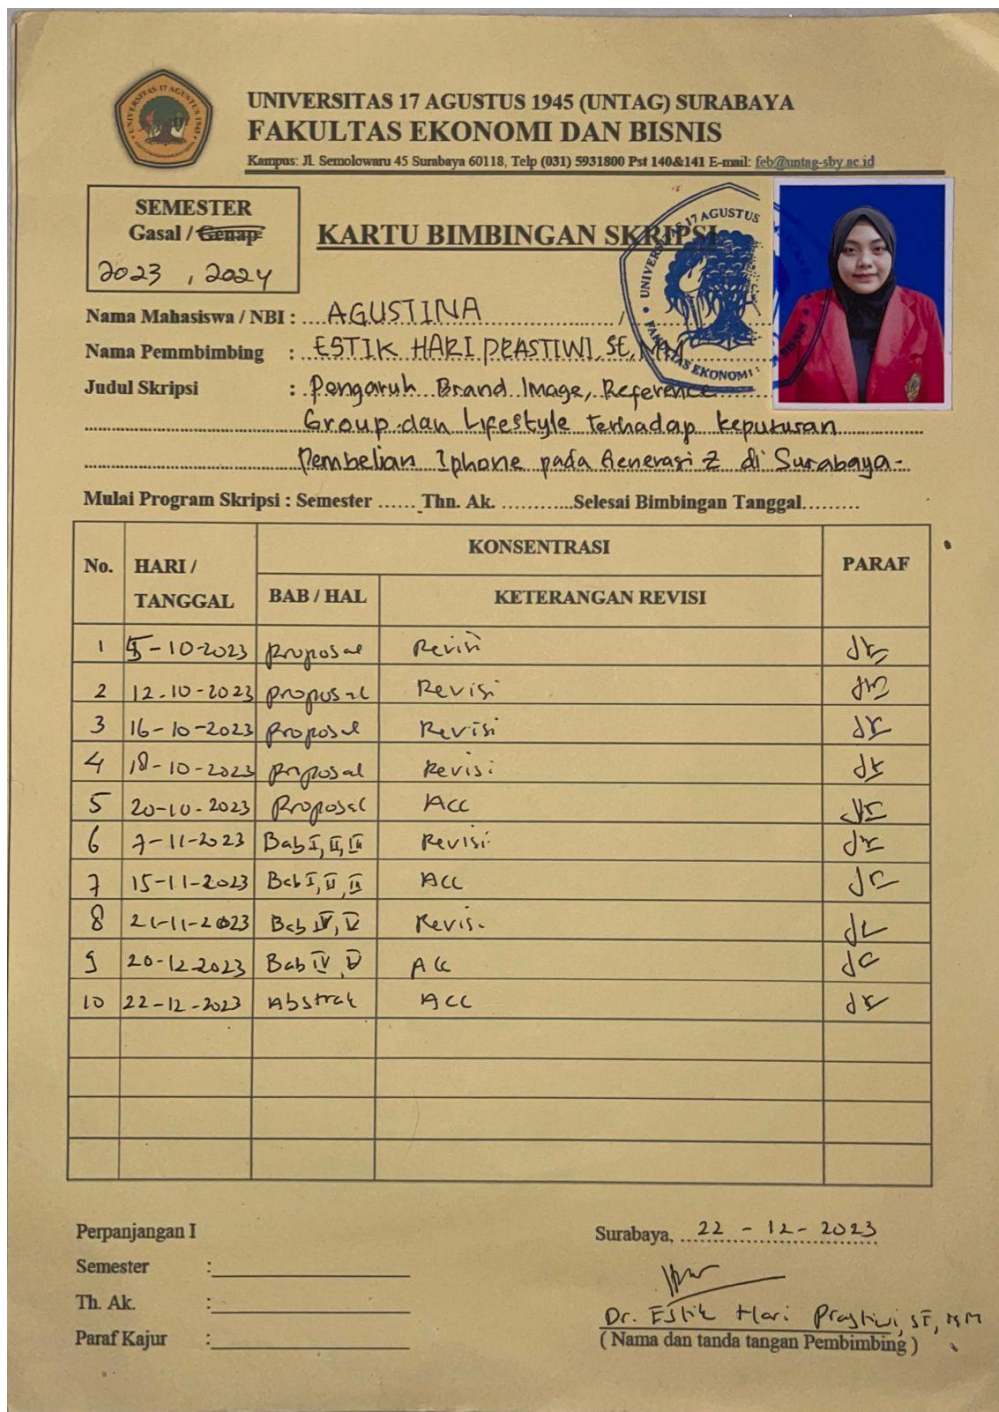 UNIVERSITAS 17 AGUSTUS 1945 (UNTAG) SURABAYA
FAKULTAS EKONOMI DAN BISNIS
Kampus: Jl. Semolowaru 45 Surabaya 60118, Telp (031) 5931800 Pst 140&141 E-mail: feb@untag-sby.ac.id
SEMESTER
Gasal / Genap
2023 , 2024
KARTU BIMBINGAN SKRIPSI
Nama Mahasiswa / NBI : AGUSTINA /
Nama Pemmbimbing : ESTIK HARI PRASTIWI, SE, MM
Judul Skripsi : Pengaruh Brand Image, Reference
Group dan Lifestyle terhadap keputusan
Pembelian Iphone pada Generasi Z di Surabaya-
Mulai Program Skripsi : Semester ...... Thn. Ak. ............Selesai Bimbingan Tanggal.........
No. HARI / TANGGAL KONSENTRASI PARAF
BAB / HAL KETERANGAN REVISI
1 5-10-2023 Proposal Revisi
2 12-10-2023 Proposal Revisi
3 16-10-2023 Proposal Revisi
4 18-10-2023 Proposal Revisi
5 20-10-2023 Proposal Acc
6 7-11-2023 Bab I, II, III Revisi
7 15-11-2023 Bab I, II, III Acc
8 21-11-2023 Bab IV, V Revisi
9 20-12-2023 Bab IV, V Acc
10 22-12-2023 Abstrak Acc
Perpanjangan I
Semester :
Th. Ak. :
Paraf Kajur :
Surabaya, 22 - 12 - 2023
Dr. Estik Hari Prastiwi, SE, MM
( Nama dan tanda tangan Pembimbing )